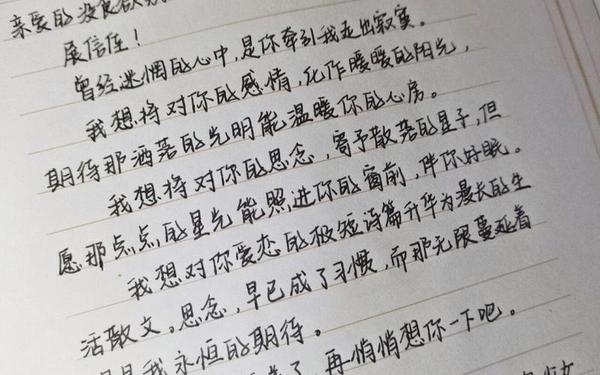 亲爱的没良
展信佳！
曾经迷惘的心中，是你牵引我走出寂寞。
我想将对你的感情，化作暖暖的阳光，
期待那洒落的光明能温暖你的心房。
我想将对你的思念，寄予散落的星子，但
愿那点点的星光能照进你的窗前，伴你好眠。
我想对你爱恋的极短诗篇升华为漫长的生
活散文。思念，早已成了习惯，而那无限蔓延着
是我永恒的期待。
了，再悄悄想你一下吧。